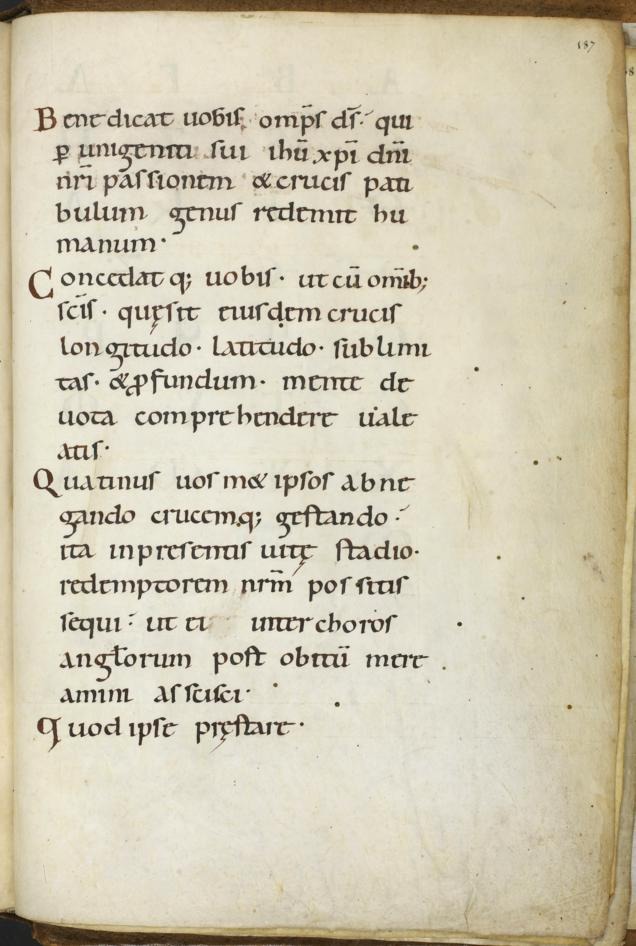 187
Benedicat uobis omp̄s d̄s qui
ꝑ unigeniti sui ihū xp̄i dn̄i
nr̄i passionem & crucis pati
bulum genus redemit hu
manum·
Concedat q; uobis· ut cū om̄ib;
sc̄is· quę sit eiusdem crucis
longitudo· latitudo· sublimi
tas· & ꝓfundum· mente de
uota comprehendere uale
atis·
Quatinus uosm& ipsos abne
gando crucemq; gestando
ita inpresentis uitę stadio·
redemptorem nr̄m possitis
sequi· ut ei inter choros
angłorum post obitū mere
amini asscisci·
Quod ipse pręstare·